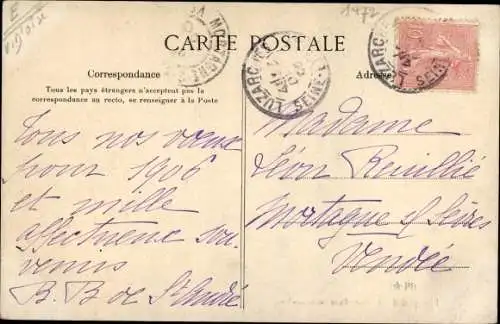 E
1472
CARTE POSTALE
Correspondance
Adresse
Tous les pays étrangers n'acceptent pas la
correspondance au recto, se renseigner à la Poste
LUZARCHES
SEINE
MORTAGNE
LUZARCHES
SEINE
10
Tous nos vœux
pour 1906
et mille
affectueux sou-
venirs
B. B de St André
Madame
Léon
Mortagne s/ Sèvres
Vendée